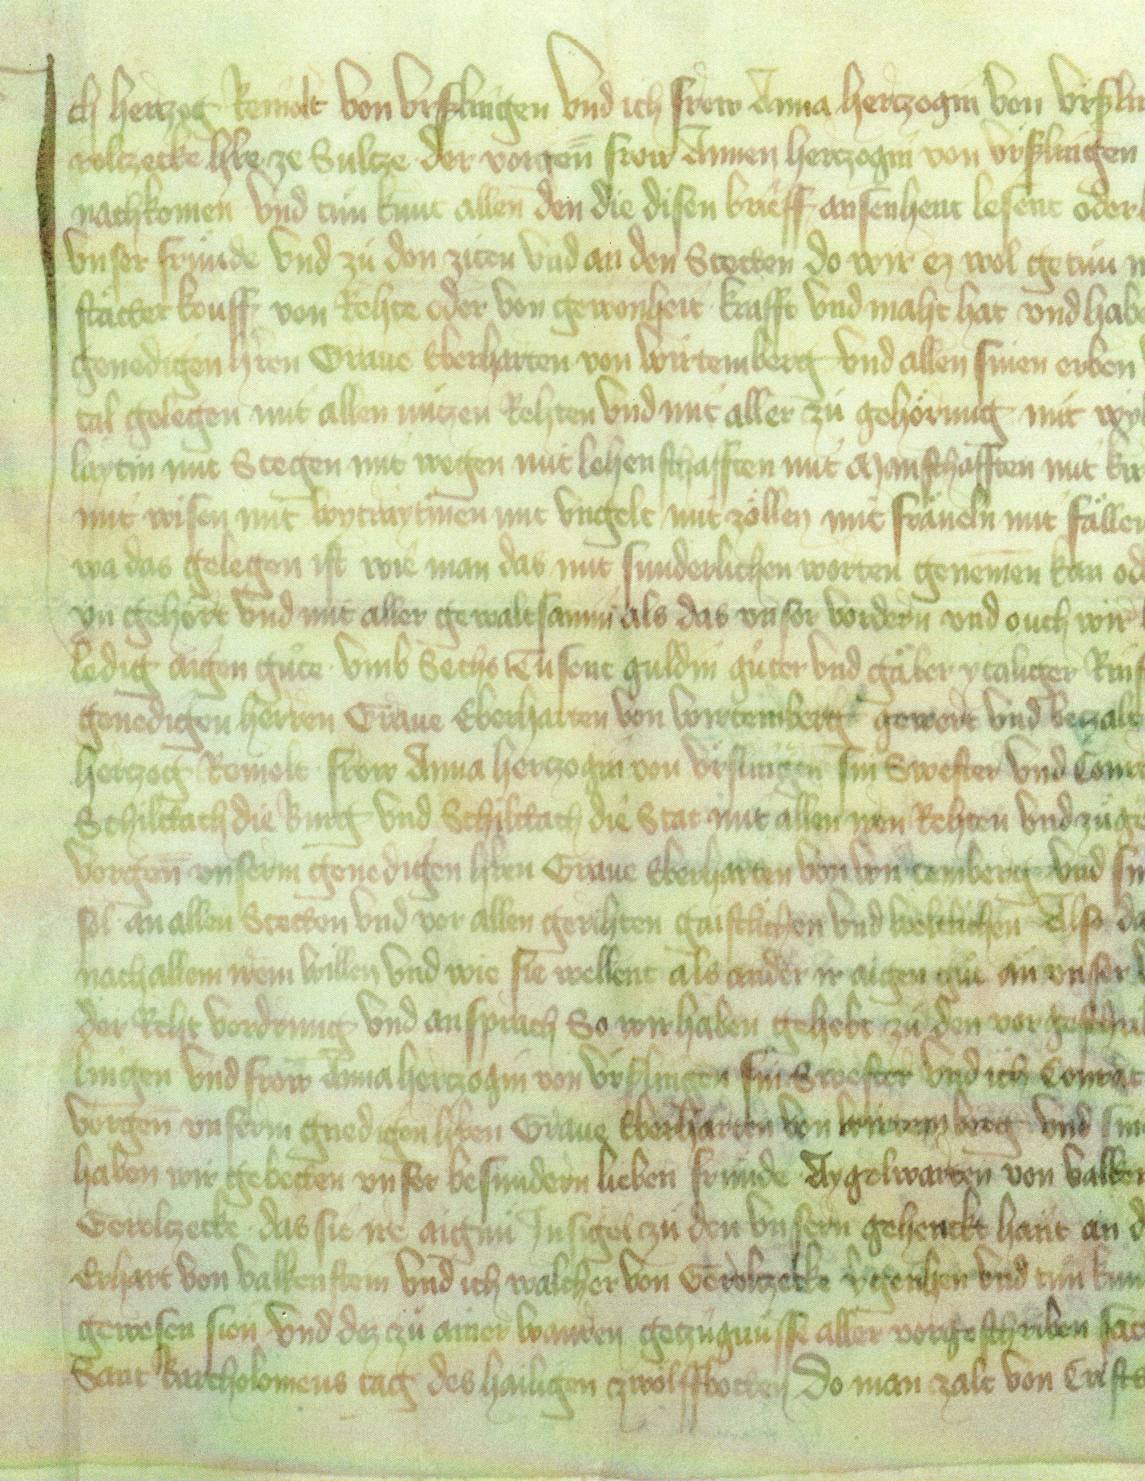 Ich hertzog Reinolt von Vrßlingen Vnd ich frow Anna hertzogin von Vrßli
roltzecke hre ze Sultze der vorgen frow Annen hertzogin von Vrßlingen
nachkomen Vnd tun kunt allen den die disen brieff ansenhent lesent oder
vnser frúnde Vnd zú den ziten Vnd an den Stetten do wir ez wol getún
stätter kouff von Rehte oder von gewonheit krafft Vnd maht hat vnd habe
genedigen hren Graue Eberharten von Wirtemberg Vnd allen sinen erben
tal gelegen mit allen nutzen Rehten Vnd mit aller zú gehörung mit
mit Stegen mit wegen mit lehenschafften mit Manschafften mit
mit wisen mit mit Vngelt mit zöllen mit fräueln mit fällen
wa das gelegen ist wie man das mit sunderlichen worten genemen kan od
gehört Vnd mit aller gewaltsami als das vnser vordern vnd ouch wir
ledig aigen gúte Vmb Sechs Tusent guldin gúter Vnd gäber
genedigen herren Graue Eberharten von Wirtemberg gewert Vnd betzalt
hertzog Reinolt frow Anna hertzogin von Vrslingen sin Swester Vnd Conr
Schiltach die Burg Vnd Schiltach die Stat mit allen iren Rehten Vnd zúge
Vorgen vnserm genedigen hren Graue Eberharten von Wirtemberg Vnd
sol an allen Stetten Vnd vor allen gerihten gaistlichen Vnd weltlichen Also
nach allem irem willen Vnd wie sie wellent als ander ir aigen gút an vnser
der Reht vordrung Vnd ansprach So wir haben gehebt zú den
lingen Vnd frow Anna hertzogin von Vrßlingen sin Swester Vnd ich Conrat
Vorgen vnserm gnedigen hren Graue Eberharten von Wirtemberg Vnd
haben wir gebetten vnser besundern lieben frúnde Aygelwarten von Valken
Gerolczecke das sie ire aigni Insigel zú den vnsern gehenckt hant an
Erhart von Valkenstein Vnd ich walther von Gerolczecke veriehen Vnd tún kun
gewesen sien Vnd dez zú ainer waren getzúgnússe aller vorgeschriben
Sant Bartholomeus tag des hailigen zwölffbotten Do man zalt von Crist